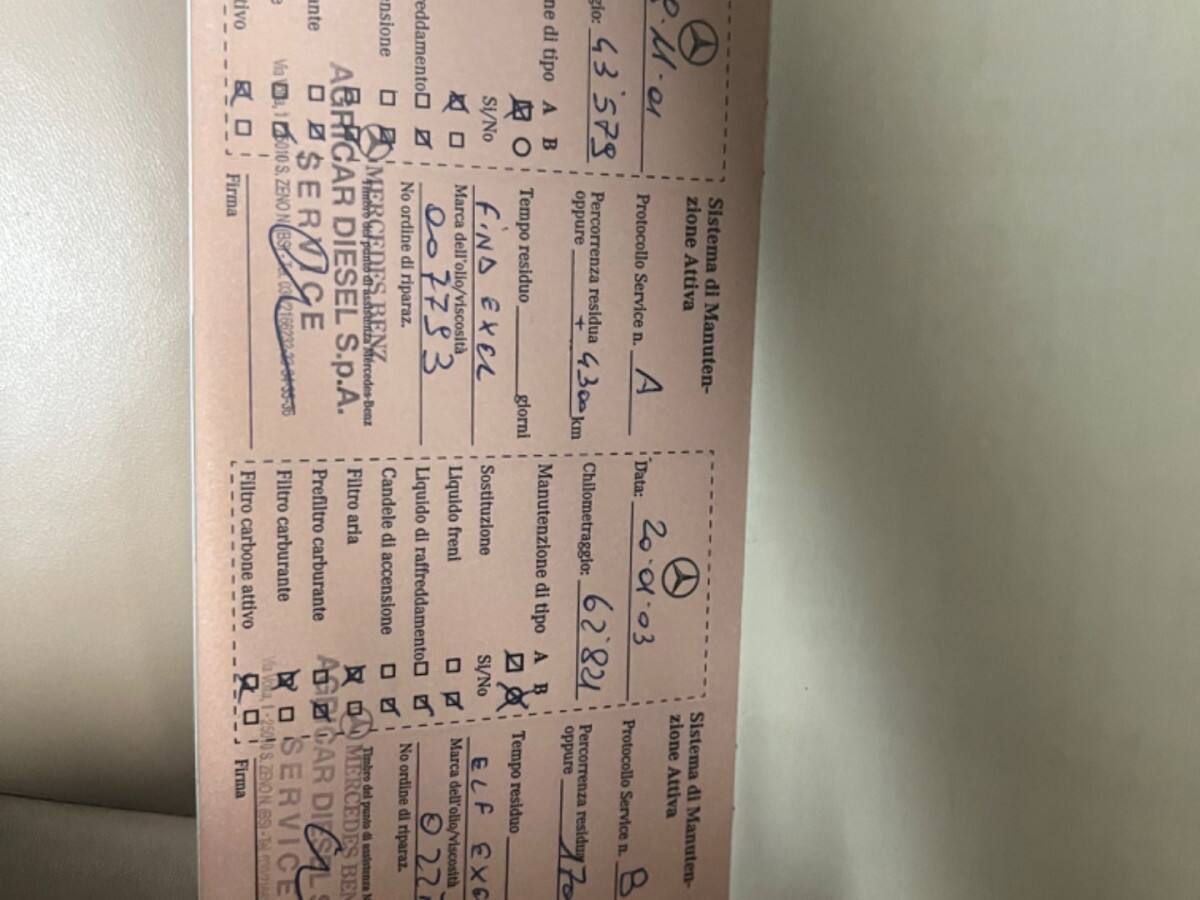 11.01
gio: 43'579
ne di tipo A B
Si/No
reddamento
ensione
ante
tivo
Sistema di Manuten-
zione Attiva
Protocollo Service n. A
Percorrenza residua
oppure + 4300 km
Tempo residuo giorni
FINA EXEL
Marca dell'olio/viscosità
007793
No ordine di riparaz.
MERCEDES BENZ
Timbro del punto di assistenza Mercedes-Benz
AGRICAR DIESEL S.p.A.
SERVICE
Firma
Data: 20.01.03
Chilometraggio: 62'821
Manutenzione di tipo A B
Sostituzione Si/No
Liquido freni
Liquido di raffreddamento
Candele di accensione
Filtro aria
Prefiltro carburante
Filtro carburante
Filtro carbone attivo
Sistema di Manuten-
zione Attiva
Protocollo Service n. B
Percorrenza residua
oppure
Tempo residuo
ELF EXE
Marca dell'olio/viscosità
022
No ordine di riparaz.
Timbro del punto di assistenza M
MERCEDES BEN
AGRICAR DIESEL S
SERVICE
Via Volta, 1 - 25010 S. ZENO N. (BS) - Tel.
Firma